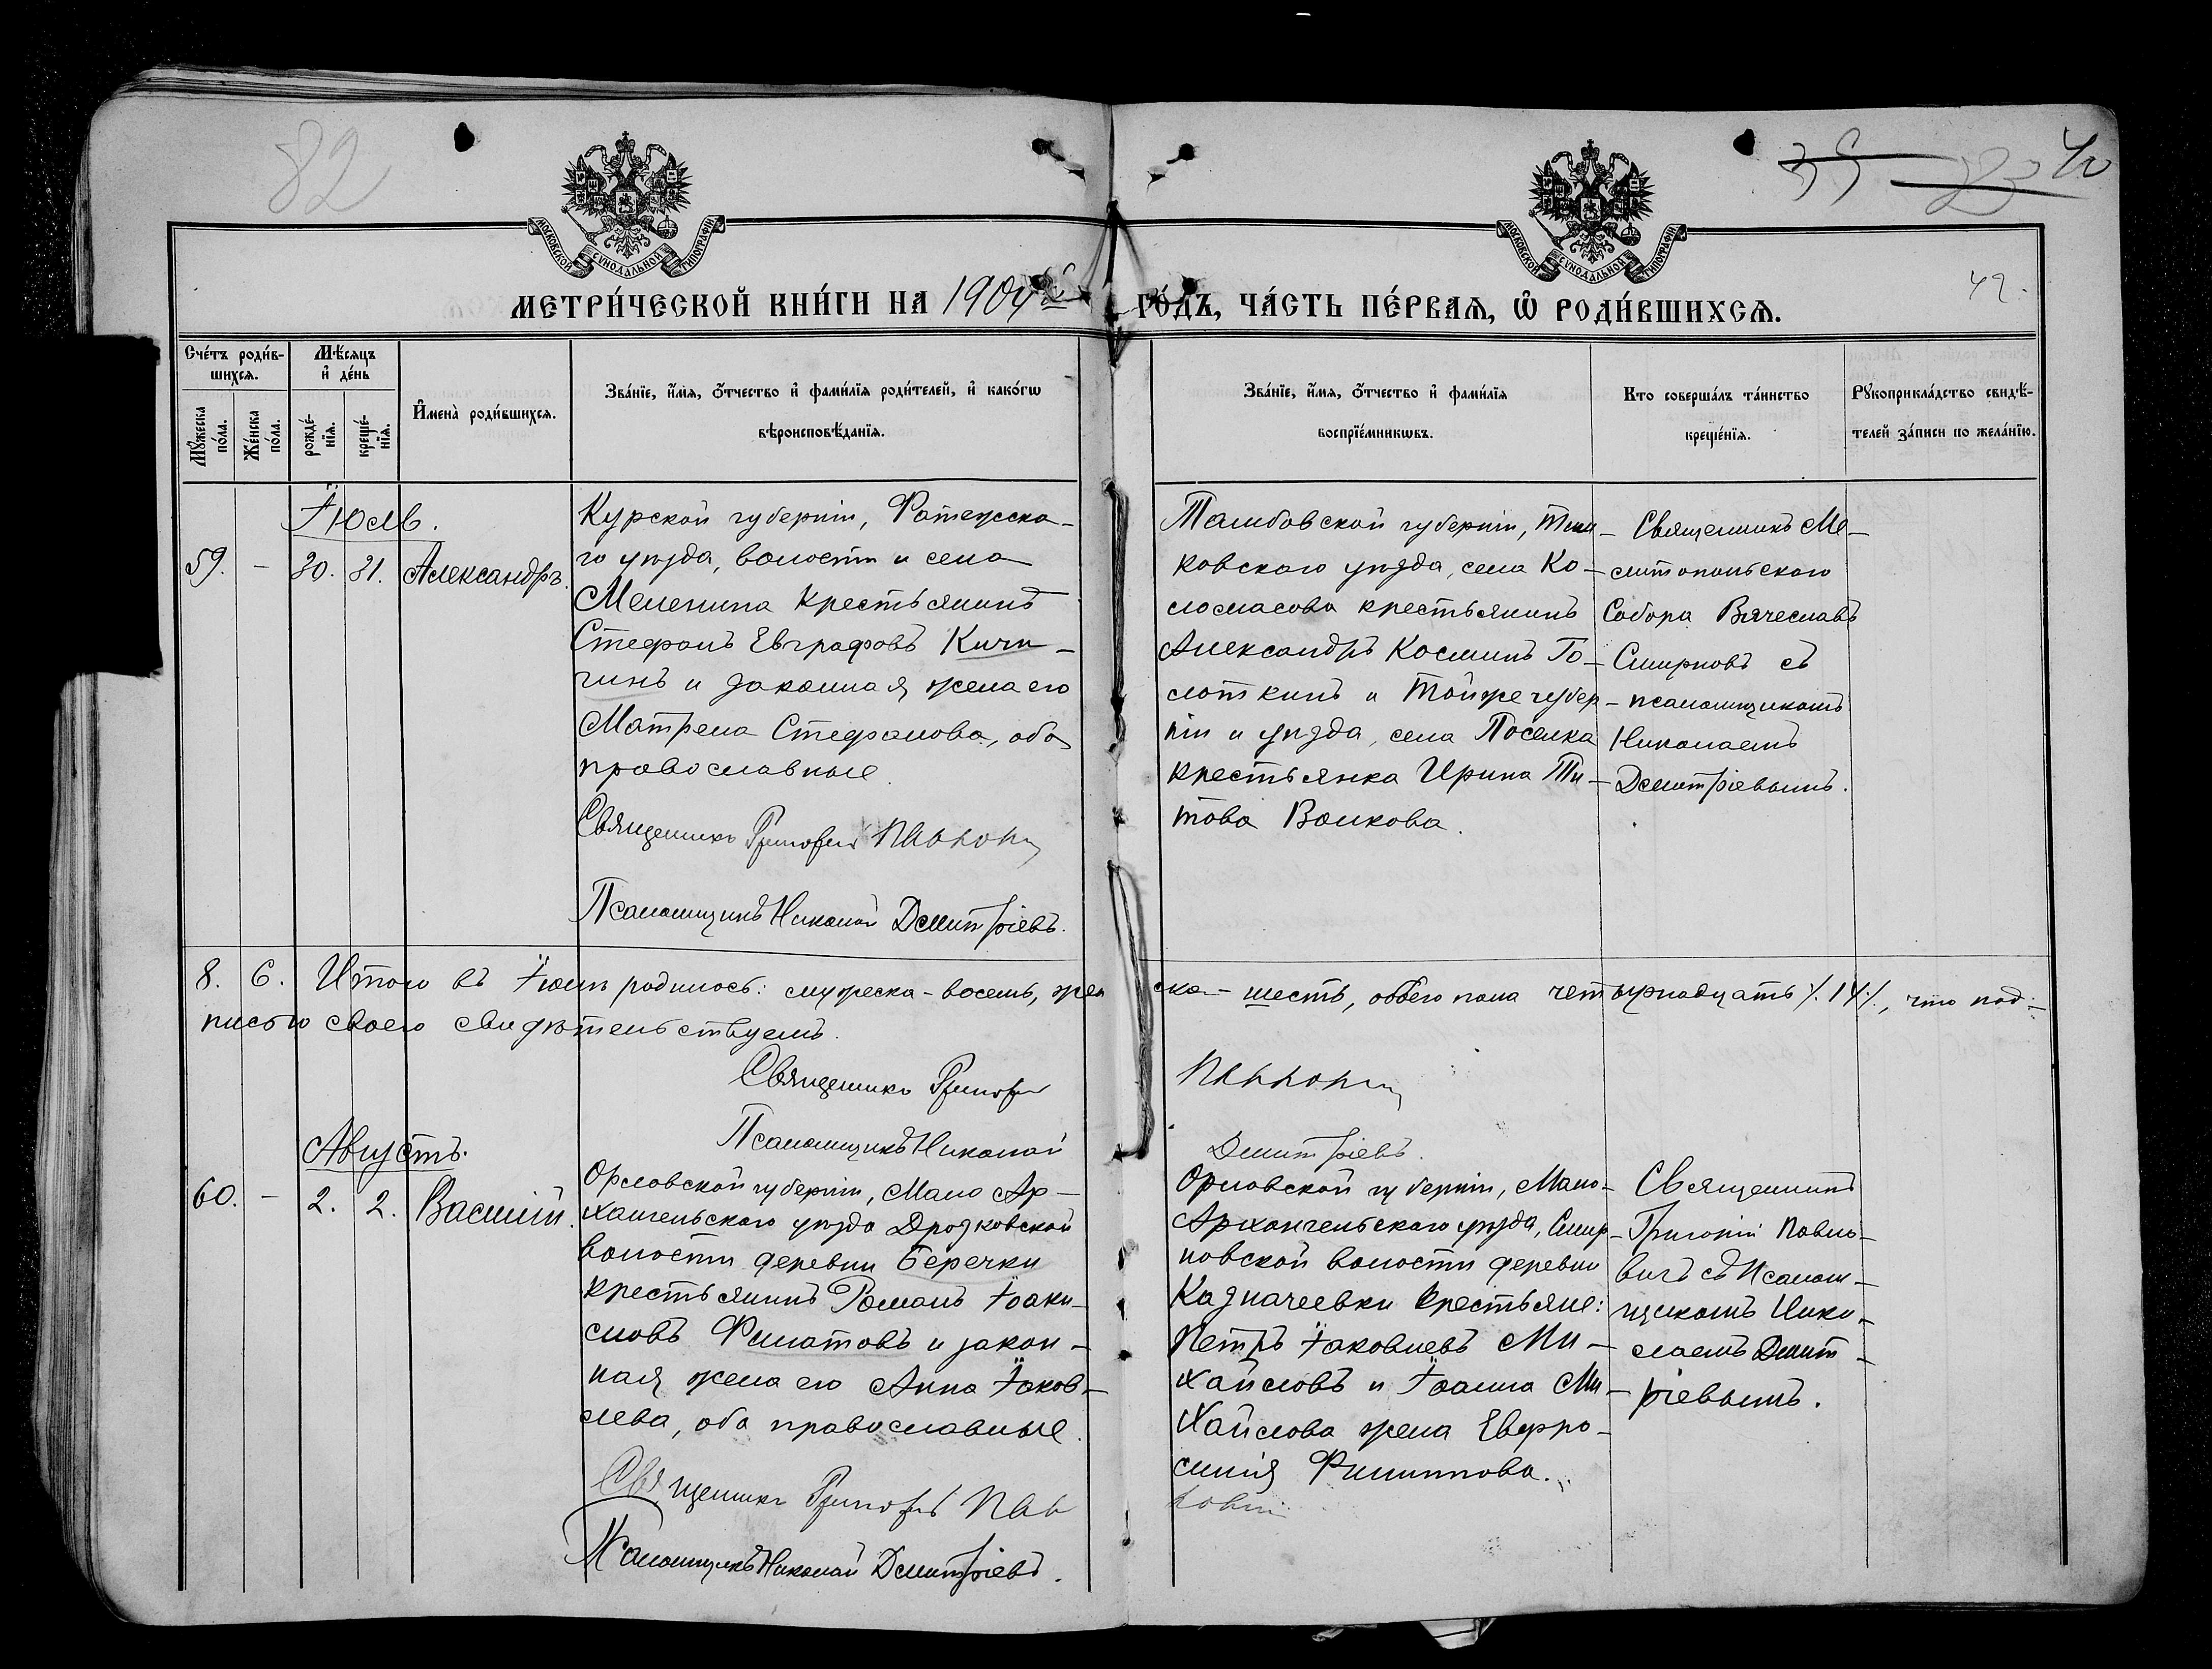 82
39 83 40
МОСКОВСКОЙ СѴНОДАЛЬНОЙ ТИПОГРАФІИ
МОСКОВСКОЙ СѴНОДАЛЬНОЙ ТИПОГРАФІИ
42.
МЕТРИ́ЧЕСКОЙ КНИ́ГИ НА 1904й ГО́ДЪ, ЧА́СТЬ ПЕ́РВАѦ, Ѡ҆ РОДИ́ВШИХСѦ.
Сче́тъ роди́в-
шихсѧ.
Мѣ́сѧцъ
и҆ де́нь
Мꙋ́жеска
по́ла.
Же́нска
по́ла.
рожде́-
нїѧ.
креще́-
нїѧ.
И҆мена̀ роди́вшихсѧ.
Зва́нїе, и҆́мѧ, ѻ҆́тчество и҆ фами́лїѧ роди́телей, и҆ како́гѡ
вѣроисповѣ́данїѧ.
Зва́нїе, и҆́мѧ, ѻ҆́тчество и҆ фами́лїѧ
воспрїе́мникѡвъ.
Кто соверша́лъ та́инство
креще́нїѧ.
Рꙋкоприкла́дство свидѣ́-
телей за́писи по жела́нїю.
Іюль.
59. - 30. 31. Александръ.
Курской губерніи, Фатежска-
го уѣзда, волости и села
Меленина крестьянинъ
Стефанъ Евграфовъ Кичи-
гинъ и законная жена его
Матрена Стефанова, оба
православные.
Священникъ Григорій Павловичъ
Псаломщикъ Николай Дмитріевъ.
Тамбовской губерніи, Тем-
ковского уѣзда, села Ко-
ломасова крестьянинъ
Александръ Косминъ Го-
лоткинъ и тойже губер-
ніи и уѣзда, села Поселка
крестьянка Ирина Ти-
това Волкова.
Священникъ Ме-
литопольского
Собора Вячеславъ
Смирновъ съ
псаломщикомъ
Николаемъ
Дмитріевымъ.
8. 6. Итого въ Іюлѣ родилось: мужеска - восемь, жен ска - шесть, обоего пола четырнадцать ٪ 14 ٪, что под-
писью своею свидѣтельствуемъ.
Священникъ Григорій Павловичъ
Псаломщикъ Николай Дмитріевъ.
Августъ.
60. - 2. 2. Василій.
Орловской губерніи, Мало Ар-
хангельскаго уѣзда Дросковской
волости деревни Беречки
крестьянинъ Романъ Іоаки-
мовъ Филатовъ и закон-
ная жена его Анна Іаков-
лева, оба православные.
Священникъ Григорій Павловичъ
Псаломщикъ Николай Дмитріевъ.
Орловской губерніи, Мало-
Архангельскаго уѣзда, Смир-
новской волости деревни
Казначеевки крестьяне:
Петръ Іаковлевъ Ми-
хайловъ и Іоанна Ми-
хайлова жена Евфро-
синія Филиппова.
Священникъ
Григорій Павло-
вичъ съ псалом-
щикомъ Нико-
лаемъ Дмит-
ріевымъ.